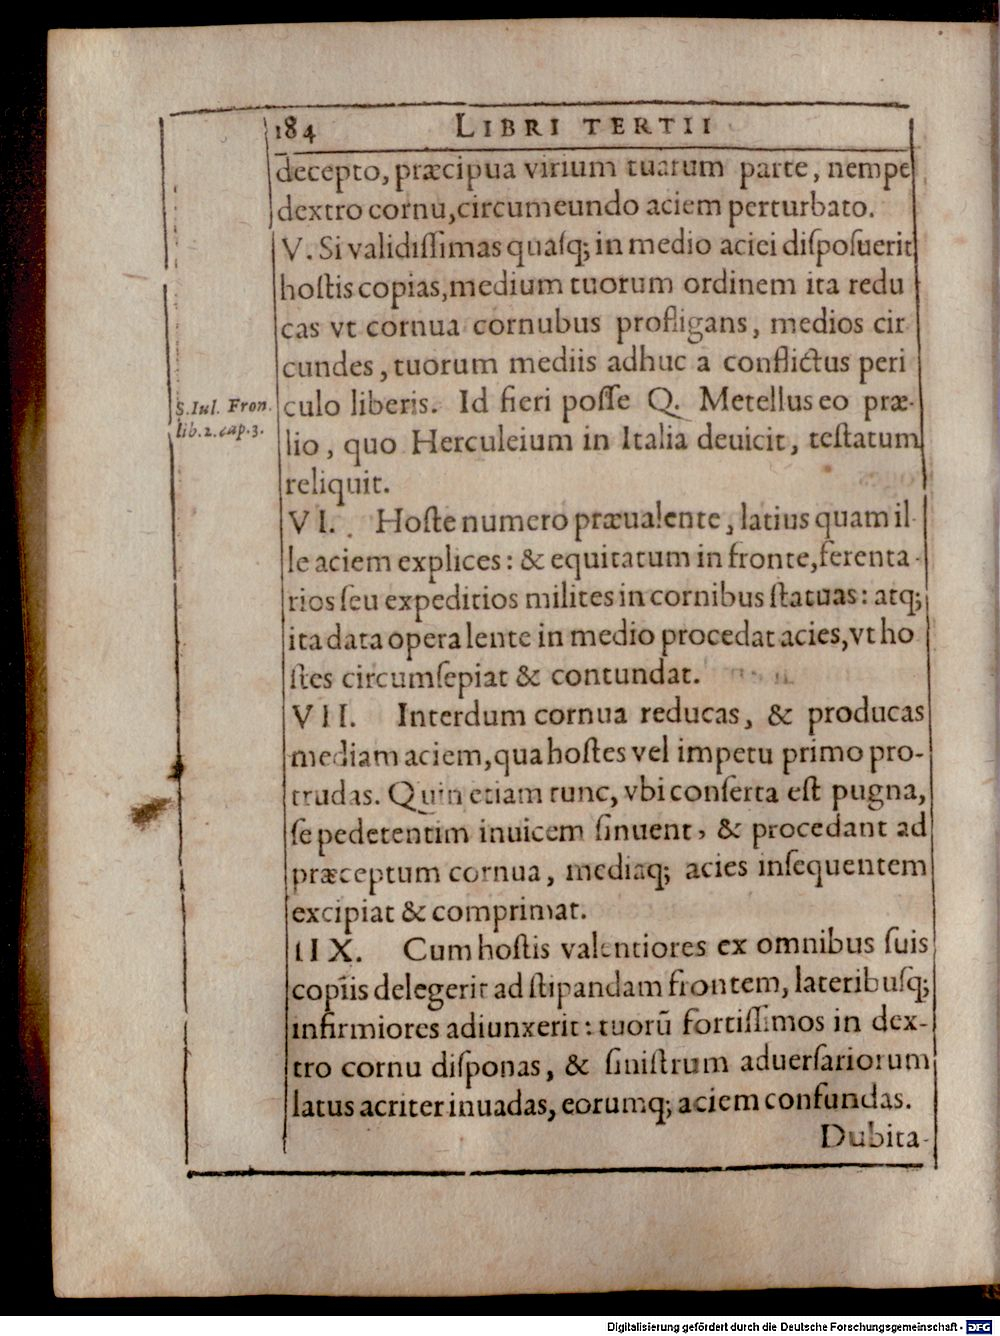 184 LIBRI TERTII
decepto, præcipua virium tuarum parte, nempe
dextro cornu, circumeundo aciem perturbato.
V. Si validiſſimas quaſq; in medio aciei diſpoſuerit
hoſtis copias, medium tuorum ordinem ita redu
cas vt cornua cornubus profligans, medios cir
cundes, tuorum mediis adhuc a conflictus peri
culo liberis. Id fieri poſſe Q. Metellus eo præ-
lio, quo Herculeium in Italia deuicit, teſtatum
reliquit.
S. Iul. Fron.
lib. 2. cap. 3.
VI. Hoſte numero præualente, latius quam il-
le aciem explices: & equitatum in fronte, ferenta-
rios ſeu expeditios milites in cornibus ſtatuas: atq;
ita data opera lente in medio procedat acies, vt ho
ſtes circumſepiat & contundat.
VII. Interdum cornua reducas, & producas
mediam aciem, qua hoſtes vel impetu primo pro-
trudas. Quin etiam tunc, vbi conſerta eſt pugna,
ſe pedetentim inuicem ſinuent, & procedant ad
præceptum cornua, mediaq; acies inſequentem
excipiat & comprimat.
IIX. Cum hoſtis valentiores ex omnibus ſuis
copiis delegerit ad ſtipandam frontem, lateribuſq;
infirmiores adiunxerit: tuorũ fortiſſimos in dex-
tro cornu diſponas, & ſiniſtrum aduerſariorum
latus acriter inuadas, eorumq; aciem confundas.
Dubita-
Digitalisierung gefördert durch die Deutsche Forschungsgemeinschaft - DFG